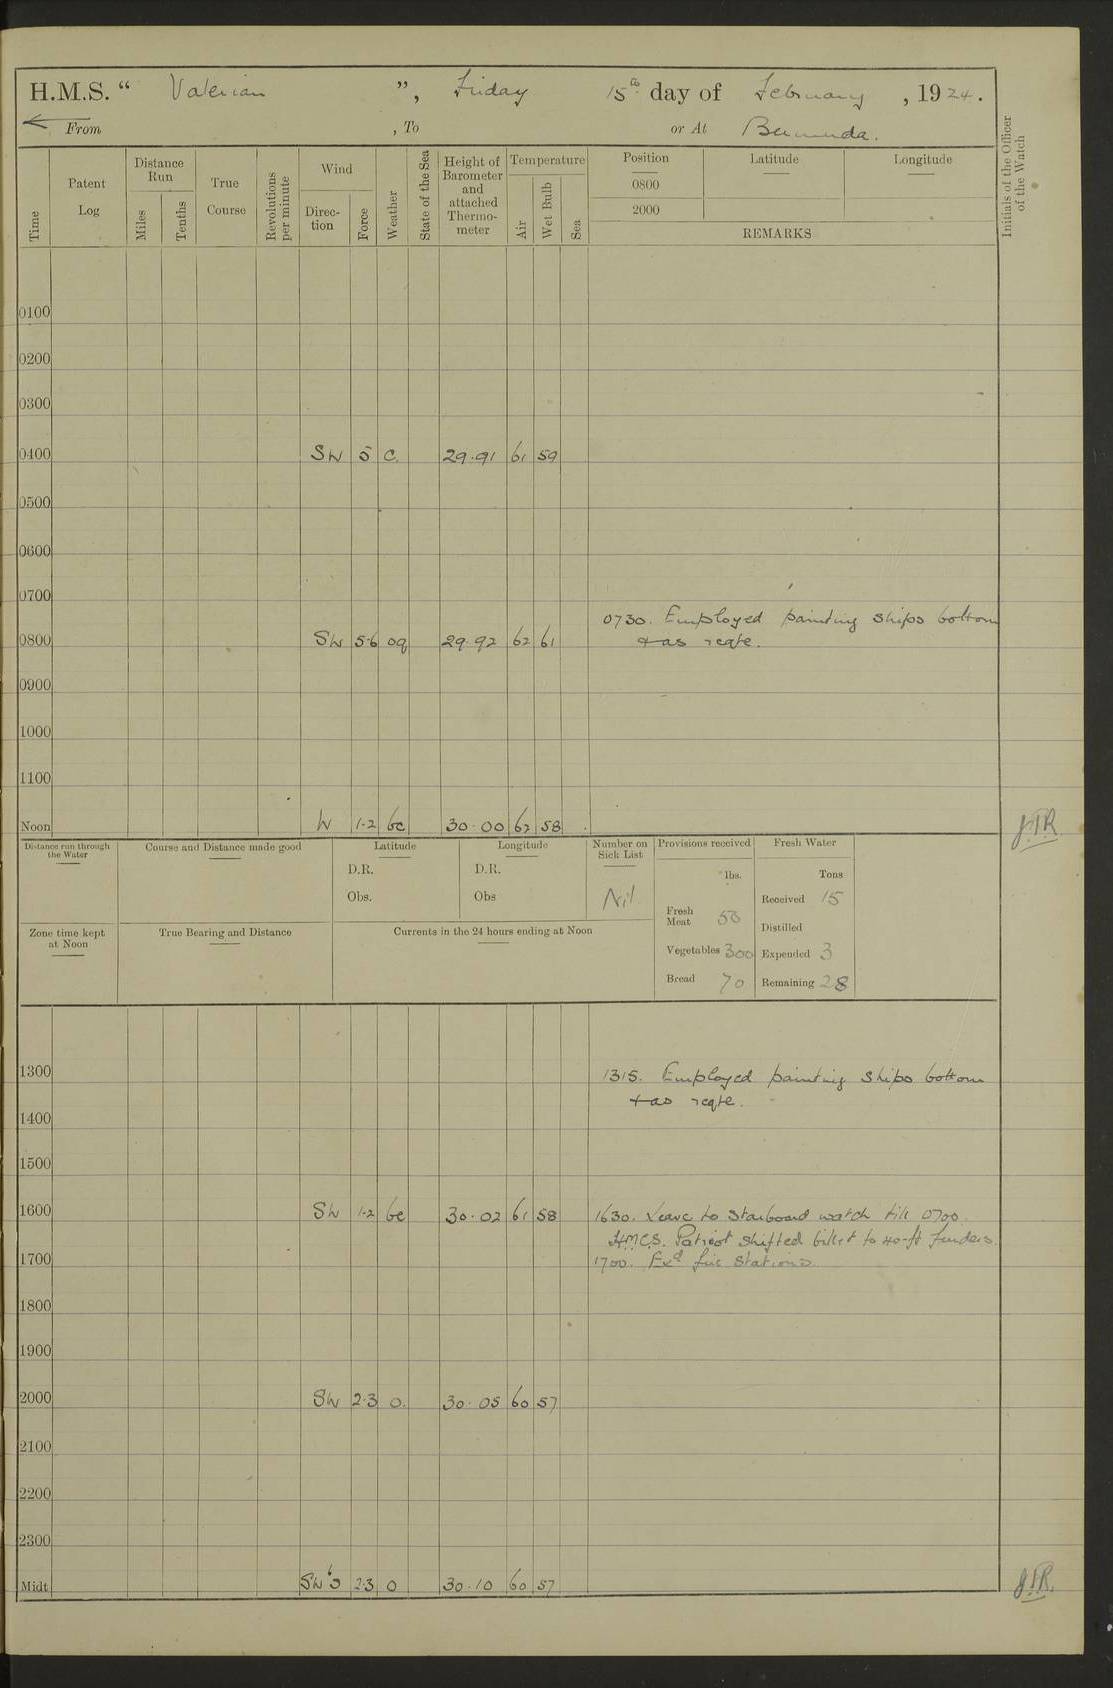 H.M.S. “ Valerian ”, Friday 15th day of February, 1924.
From , To or At Bermuda.
Time Patent Log Distance Run Miles Tenths True Course Revolutions per minute Wind Direc-tion Force Weather State of the Sea Height of Barometer and attached Thermo-meter Temperature Air Wet Bulb Sea Position Latitude Longitude Initials of the Officer of the Watch
0800
2000
REMARKS
0100
0200
0300
0400 SW 5 c. 29.91 61 59
0500
0600
0700
0730. Employed painting ships bottom
0800 SW 5.6 oq 29.92 62 61 + as reqte.
0900
1000
1100
Noon W 1-2 bc 30.00 62 58
Distance run through the Water Course and Distance made good Latitude Longitude Number on Sick List Provisions received Fresh Water
D.R. D.R. lbs. Tons
Obs. Obs Nil Received 15
Fresh Meat 50 Distilled
Zone time kept at Noon True Bearing and Distance Currents in the 24 hours ending at Noon
Vegetables 300 Expended 3
Bread 70 Remaining 28
1300 1315. Employed painting ships bottom
+ as reqte.
1400
1500
1600 SW 1-2 bc 30.02 61 58 1630. Leave to Starboard watch till 0700.
H.M.C.S. Patriot shifted billet to 40-ft fenders.
1700 1700. Exd fire Stations
1800
1900
2000 SW 2.3 o. 30.05 60 57
2100
2200
2300
Midt. SWbS 2.3 o 30.10 60 57